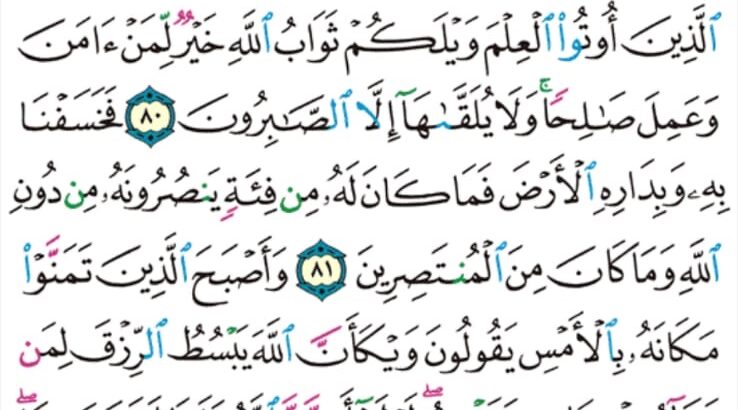 ٱلَّذِينَ أُوتُوا۟ ٱلْعِلْمَ وَيْلَكُمْ ثَوَابُ ٱللَّهِ خَيْرٌ لِّمَنْ ءَامَنَ
وَعَمِلَ صَٰلِحًا ۚ وَلَا يُلَقَّىٰهَآ إِلَّا ٱلصَّٰبِرُونَ ٨٠ فَخَسَفْنَا
بِهِۦ وَبِدَارِهِ ٱلْأَرْضَ فَمَا كَانَ لَهُۥ مِن فِئَةٍ يَنصُرُونَهُۥ مِن دُونِ
ٱللَّهِ وَمَا كَانَ مِنَ ٱلْمُنتَصِرِينَ ٨١ وَأَصْبَحَ ٱلَّذِينَ تَمَنَّوْا۟
مَكَانَهُۥ بِٱلْأَمْسِ يَقُولُونَ وَيْكَأَنَّ ٱللَّهَ يَبْسُطُ ٱلرِّزْقَ لِمَن